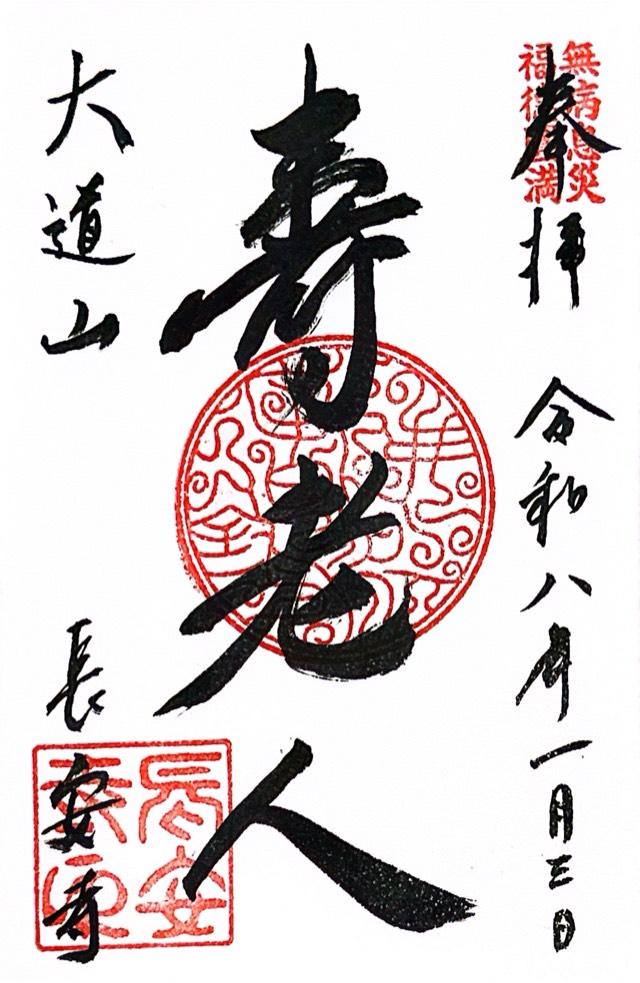 無病息災
福徳円満
奉拝 令和八年一月三日
寿老人
大道山 長安寺